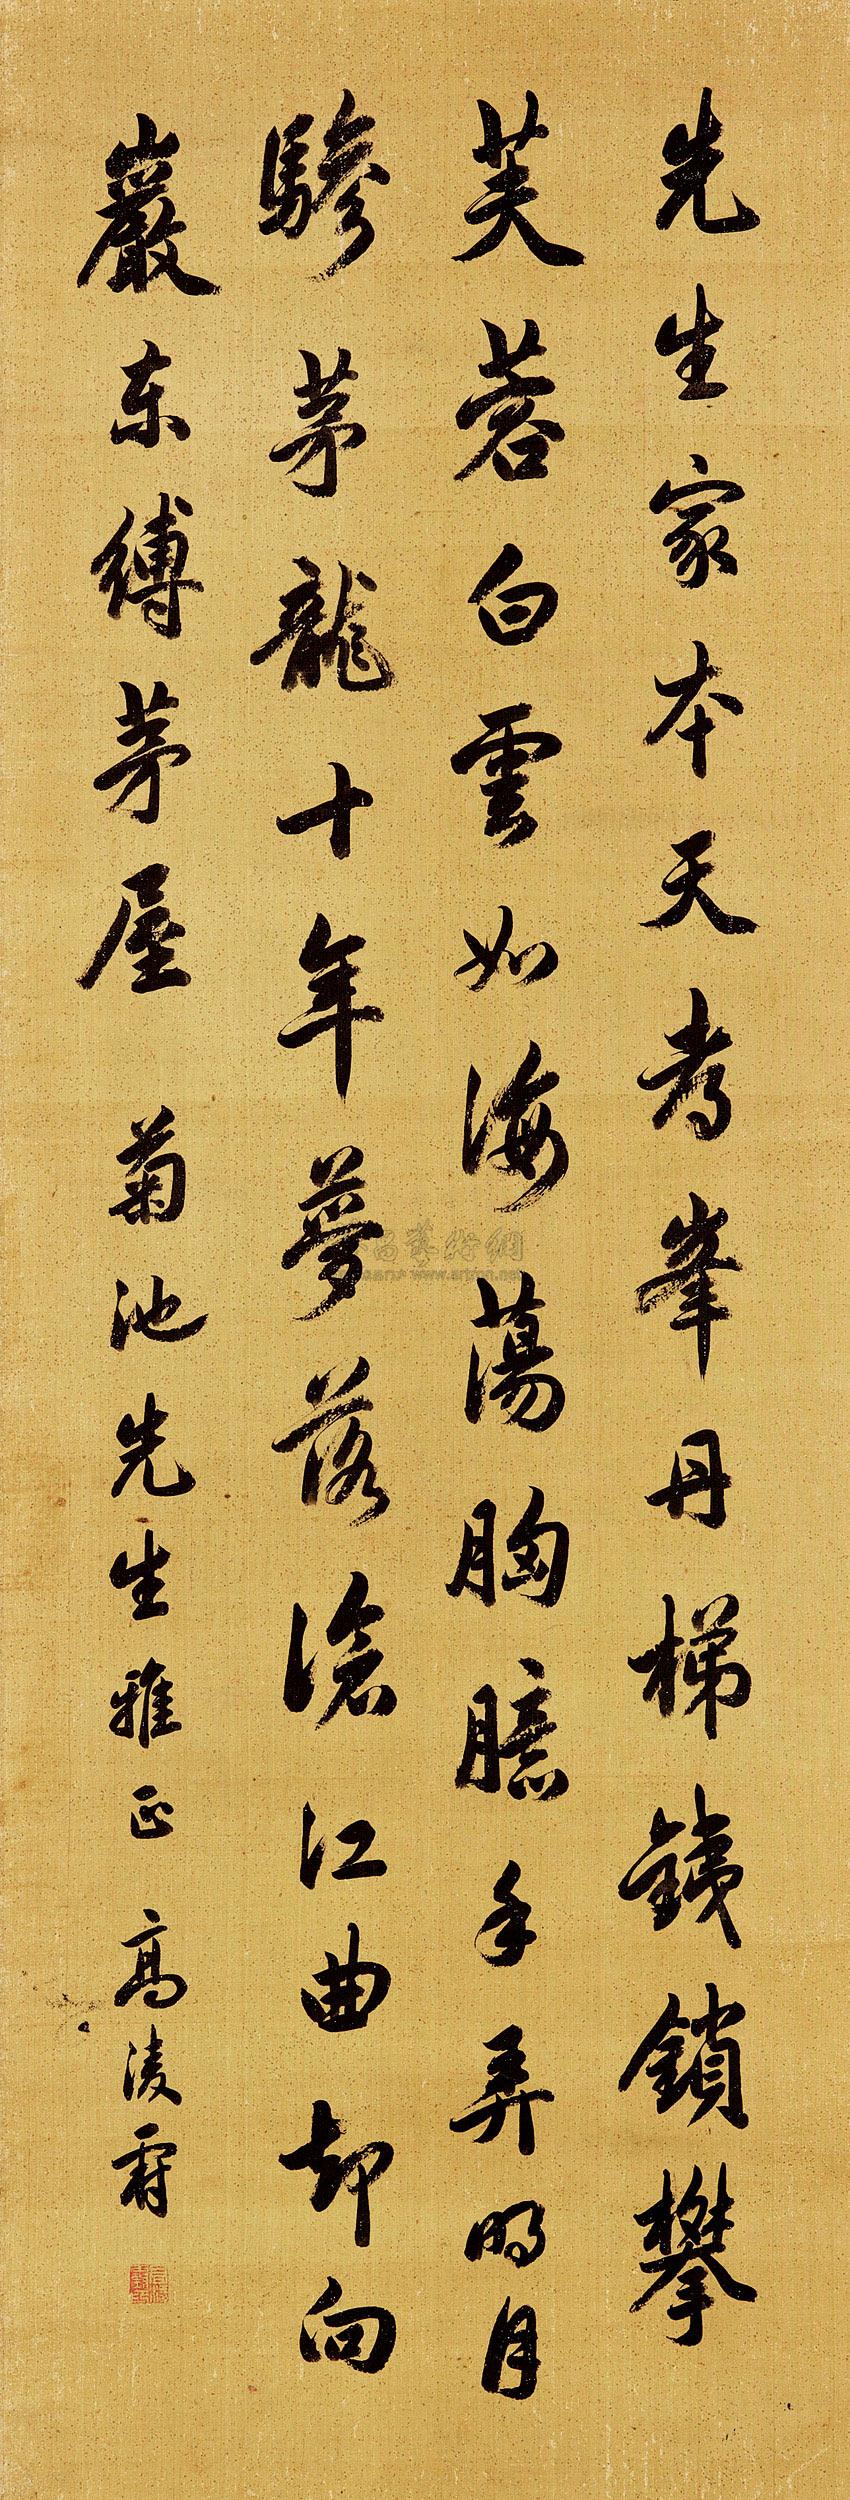 先生家本天考峯丹梯鐵鎖攀
芙蓉白雲如海蕩胸臆手弄明月
驂茅龍十年夢落滄江曲却向
巖东縛茅屋 菊池先生雅正 高凌霨